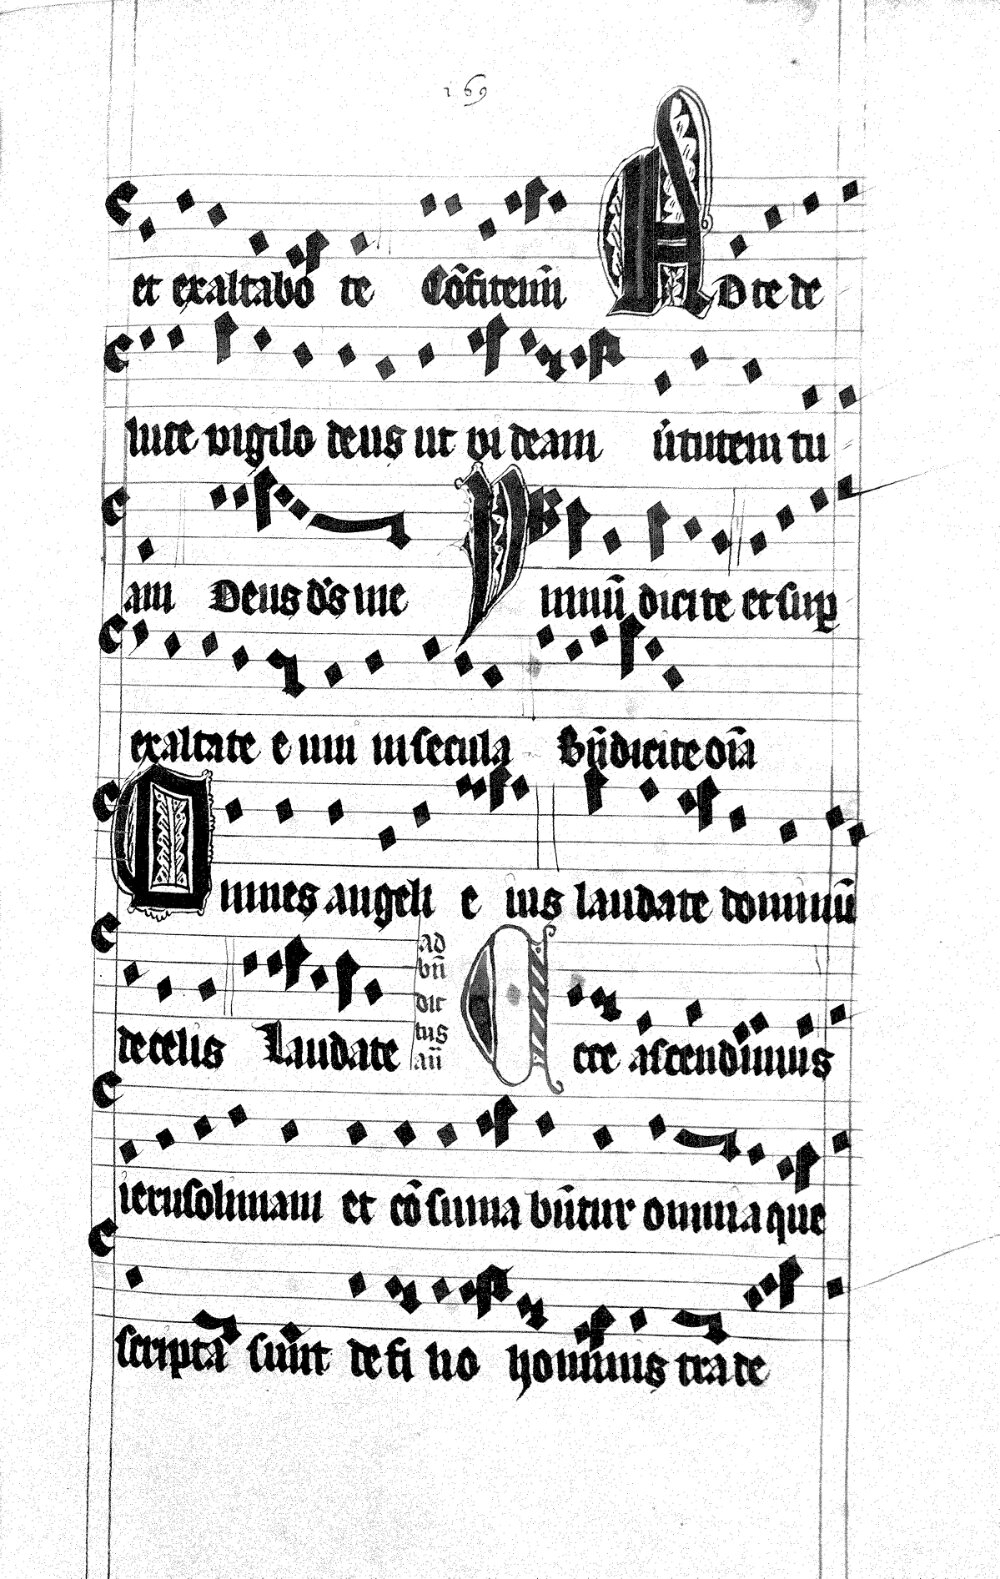 169
et exaltabo te Cōfitemī AD te de
luce vigilo deus ut videam ūtutem tu
am Deus dn̄s me Ymnū dicite et suꝑ
exaltate eum in secula Bn̄dicite oīa
Omnes angeli eius laudate dominū
de celis Laudate
ad
bn̄
dic
tus
an̄
Ecce ascendimus
ierusolimam et cōsumabūtur omnia que
scripta sunt de filio hominis trade